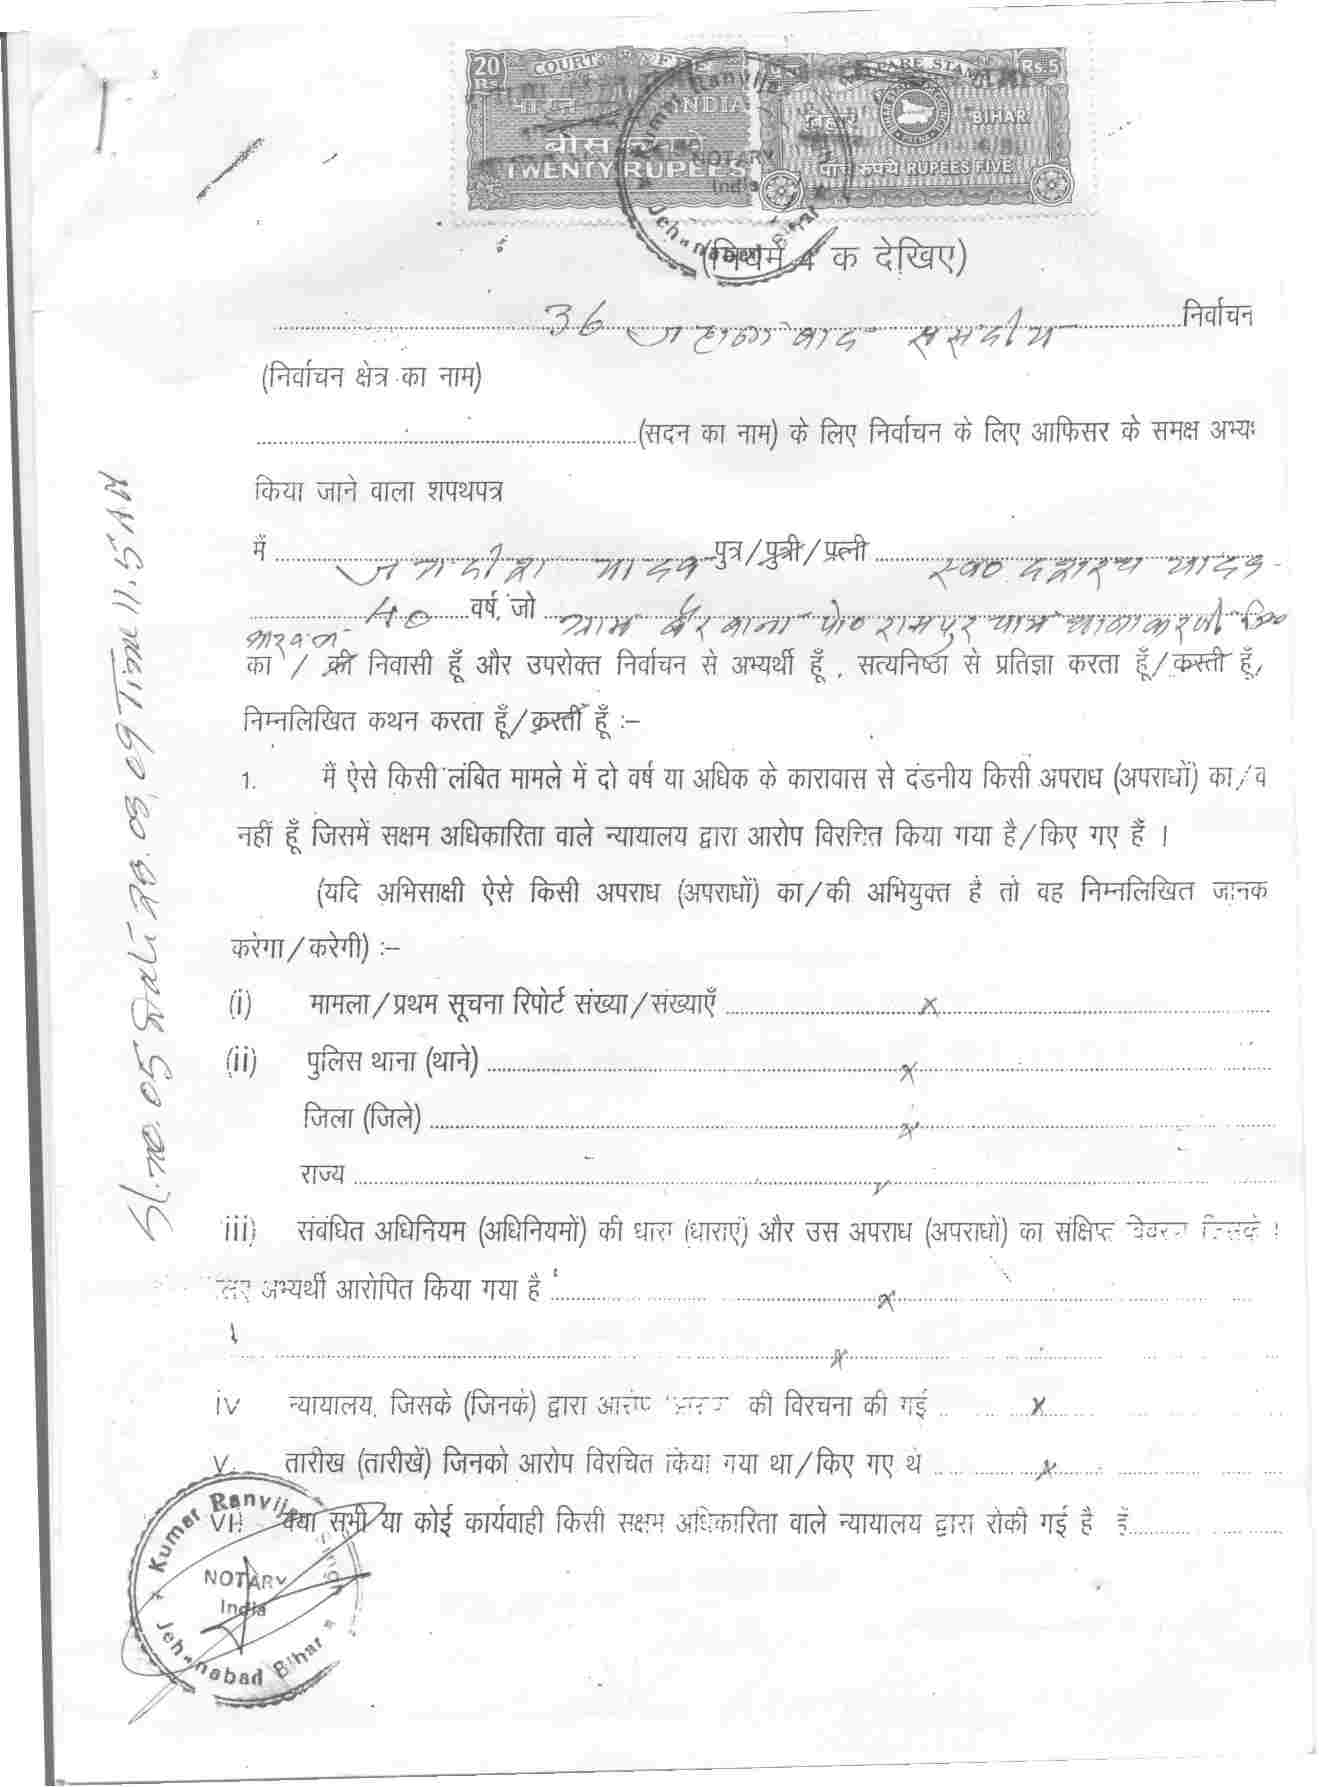 20 COURT FEE
Rs.
भारत INDIA
बीस रुपये
TWENTY RUPEES
WELFARE STAMP Rs.5
बिहार BIHAR
पांच रूपये RUPEES FIVE
Kumar Ranvijay Singh
NOTARY
India
Jehanabad Bihar
(नियम 4 क देखिए)
36 जहानाबाद संसदीय निर्वाचन
(निर्वाचन क्षेत्र का नाम)
(सदन का नाम) के लिए निर्वाचन के लिए आफिसर के समक्ष अभ्य
किया जाने वाला शपथपत्र
मैं जगदीश यादव पुत्र/पुत्री/पत्नी स्व० दशरथ यादव
40 वर्ष, जो ग्राम बैरबाना पो० रामपुर थाना करपी जि०
अरवल
का / की निवासी हूँ और उपरोक्त निर्वाचन से अभ्यर्थी हूँ , सत्यनिष्ठा से प्रतिज्ञा करता हूँ/करती हूँ,
निम्नलिखित कथन करता हूँ/करती हूँ :–
1. मैं ऐसे किसी लंबित मामले में दो वर्ष या अधिक के कारावास से दंडनीय किसी अपराध (अपराधों) का/
नहीं हूँ जिसमें सक्षम अधिकारिता वाले न्यायालय द्वारा आरोप विरचित किया गया है/किए गए हैं ।
(यदि अभिसाक्षी ऐसे किसी अपराध (अपराधों) का/की अभियुक्त है तो वह निम्नलिखित जानक
करेगा/करेगी) :–
(i) मामला/प्रथम सूचना रिपोर्ट संख्या/संख्याएँ x
(ii) पुलिस थाना (थाने) x
जिला (जिले) x
राज्य
iii) संबंधित अधिनियम (अधिनियमों) की धारा (धाराएं) और उस अपराध (अपराधों) का संक्षिप्त विवरण जिसके
लिए अभ्यर्थी आरोपित किया गया है x
x
iv न्यायालय, जिसके (जिनके) द्वारा आरोप की विरचना की गई x
v. तारीख (तारीखें) जिनको आरोप विरचित किया गया था/किए गए थे x
VI. क्या सभी या कोई कार्यवाही किसी सक्षम अधिकारिता वाले न्यायालय द्वारा रोकी गई है हैं
Kumar Ranvijay Singh
NOTARY
India
Jehanabad Bihar
Sl. no. 05 20.03.09 Time 11.5 AM